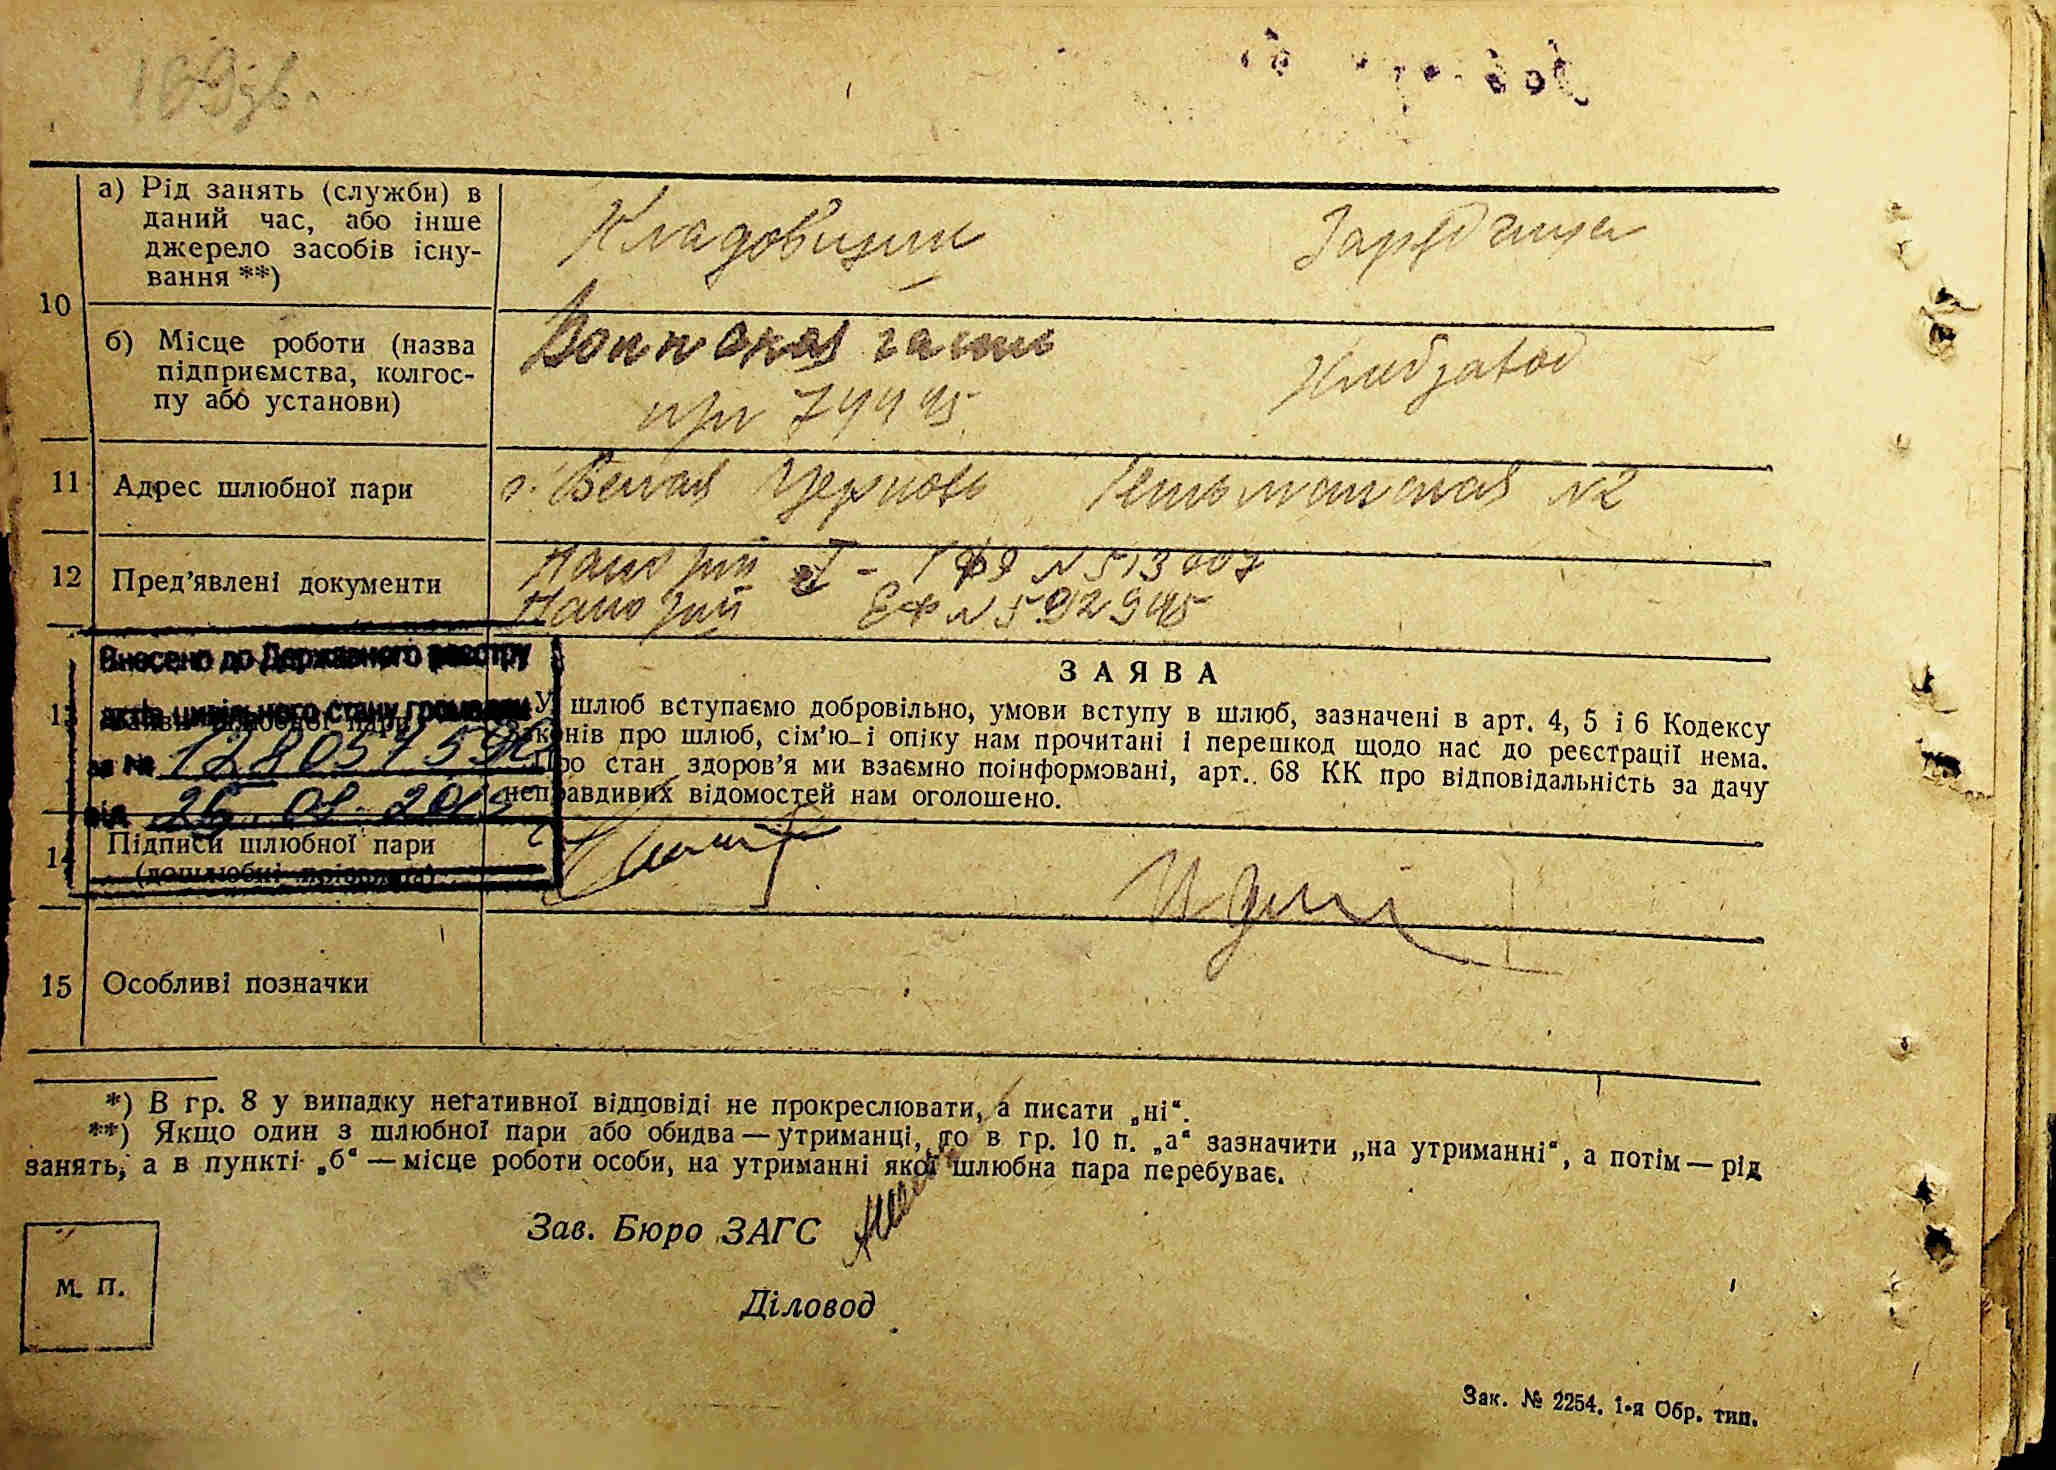 10
а) Рід занять (служби) в
даний час, або інше
джерело засобів існу-
вання **)
Кладовщик
б) Місце роботи (назва
підприємства, колгос-
пу або установи)
Воинская часть
п/п 74495
Хлебзавод
11 Адрес шлюбної пари
г. Белая Церковь №2
12 Пред'явлені документи
Паспорт № 513007
Паспорт № 592945
Внесено до Державного реєстру
актів цивільного стану громадян
за №
від
13
ЗАЯВА
У шлюб вступаємо добровільно, умови вступу в шлюб, зазначені в арт. 4, 5 і 6 Кодексу
законів про шлюб, сім'ю і опіку нам прочитані і перешкод щодо нас до реєстрації нема.
Про стан здоров'я ми взаємно поінформовані, арт. 68 КК про відповідальність за дачу
неправдивих відомостей нам оголошено.
14 Підписи шлюбної пари
(дошлюбні прізвища)
15 Особливі позначки
*) В гр. 8 у випадку негативної відповіді не прокреслювати, а писати „ні“.
**) Якщо один з шлюбної пари або обидва — утриманці, то в гр. 10 п. „а“ зазначити „на утриманні“, а потім — рід
занять, а в пункті „б“ — місце роботи особи, на утриманні якої шлюбна пара перебуває.
Зав. Бюро ЗАГС
М. П.
Діловод
Зак. № 2254. 1-я Обр. тип.